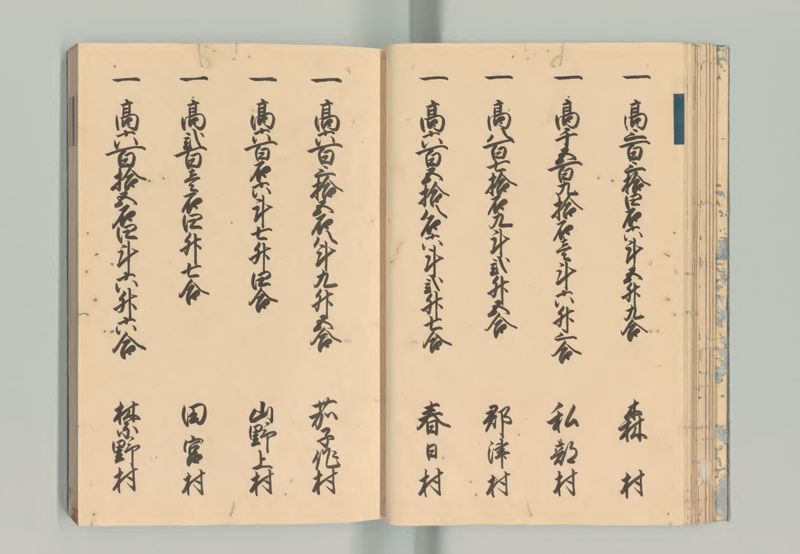 一 高三百六拾四石六斗五升九合 森村
一 高千五百九拾石壱斗六升二合 私部村
一 高八百七拾石九斗弐升五合 郡津村
一 高六百五拾八石六斗弐升七合 春日村
一 高六百六拾五石八斗九升五合 茄子作村
一 高六百石六斗七升四合 山野上村
一 高弐百壱石四升七合 田宮村
一 高六百拾五石四斗六升六合 禁野村